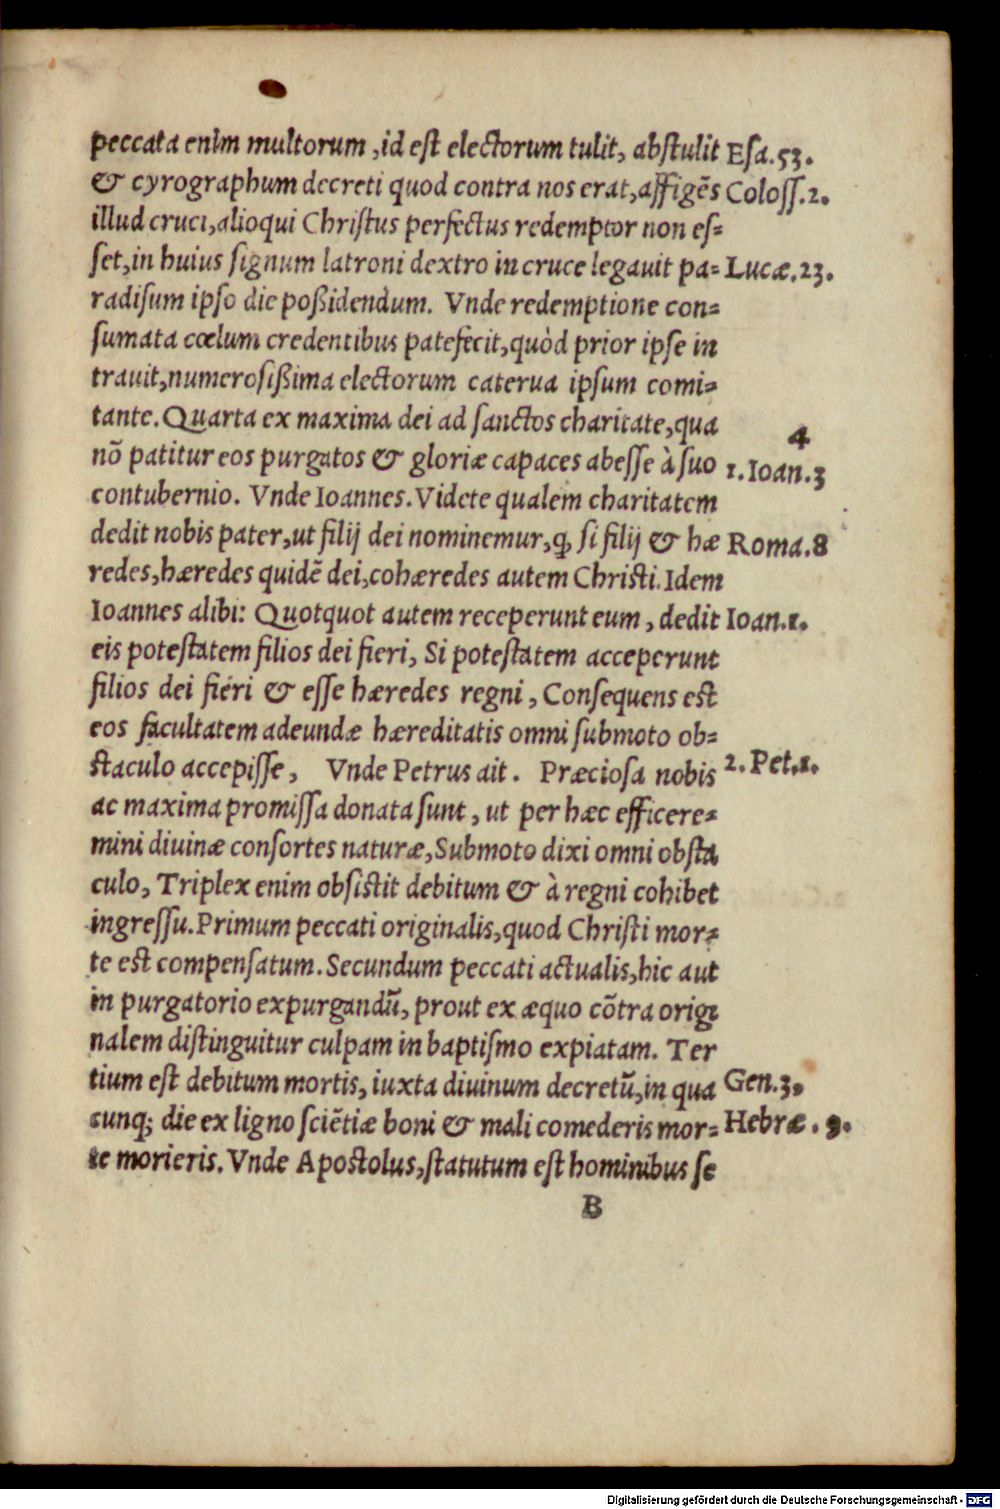 peccata enim multorum, id est electorum tulit, abstulit Esa. 53.
& cyrographum decreti quod contra nos erat, affigēs Coloss. 2.
illud cruci, alioqui Christus perfectus redemptor non es=
set, in huius signum latroni dextro in cruce legauit pa= Lucæ. 23.
radisum ipso die poßidendum. Vnde redemptione con=
sumata cœlum credentibus patefecit, quòd prior ipse in
trauit, numerosißima electorum caterua ipsum comi=
tante. Quarta ex maxima dei ad sanctos charitate, qua 4
nō patitur eos purgatos & gloriæ capaces abesse à suo 1. Ioan. 3
contubernio. Vnde Ioannes. Videte qualem charitatem
dedit nobis pater, ut filij dei nominemur, ꝙ si filij & hæ Roma. 8
redes, hæredes quidē dei, cohæredes autem Christi. Idem
Ioannes alibi: Quotquot autem receperunt eum, dedit Ioan. 1.
eis potestatem filios dei fieri, Si potestatem acceperunt
filios dei fieri & esse hæredes regni, Consequens est
eos facultatem adeundæ hæreditatis omni submoto ob=
staculo accepisse, Vnde Petrus ait. Præciosa nobis 2. Pet. 1.
ac maxima promissa donata sunt, ut per hæc efficere=
mini diuinæ consortes naturæ, Submoto dixi omni obsta
culo, Triplex enim obsistit debitum & à regni cohibet
ingressu. Primum peccati originalis, quod Christi mor=
te est compensatum. Secundum peccati actualis, hic aut
in purgatorio expurgandū, prout ex æquo cōtra origi
nalem distinguitur culpam in baptismo expiatam. Ter
tium est debitum mortis, iuxta diuinum decretū, in qua Gen. 3.
cunq; die ex ligno sciētiæ boni & mali comederis mor= Hebræ. 9.
te morieris. Vnde Apostolus, statutum est hominibus se
B
Digitalisierung gefördert durch die Deutsche Forschungsgemeinschaft - DFG